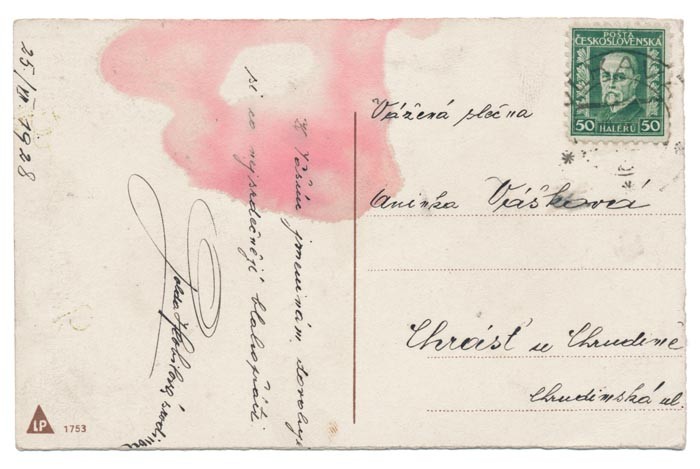 25/VII 1928
K Vašim jmeninám dovoluji
si co nejsrdečněji blahopřáti
LP 1753
POŠTA
ČESKOSLOVENSKÁ
50 HALÉŘŮ 50
Vážená slečna
Aninka Vášková
Chrásť u Chrudimě
Chrudimská ul.